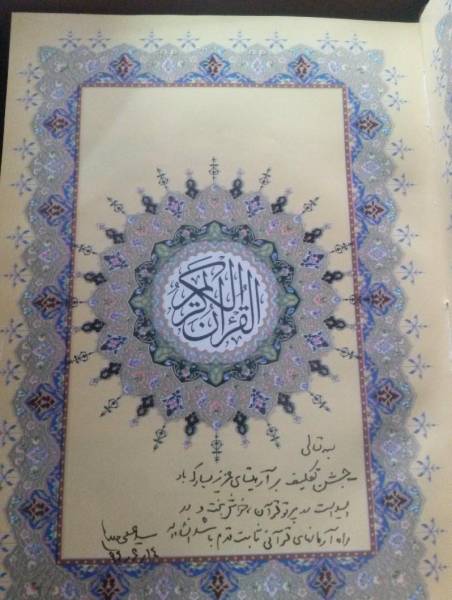 القرآن الکریم
بسه تعالی
جشن تکلیف بر آرمیتای عزیز مبارک باد
امید است در پرتو قرآن، خوشبخت و در
راه آرمان‌های قرآنی ثابت قدم باشد انشاءالله